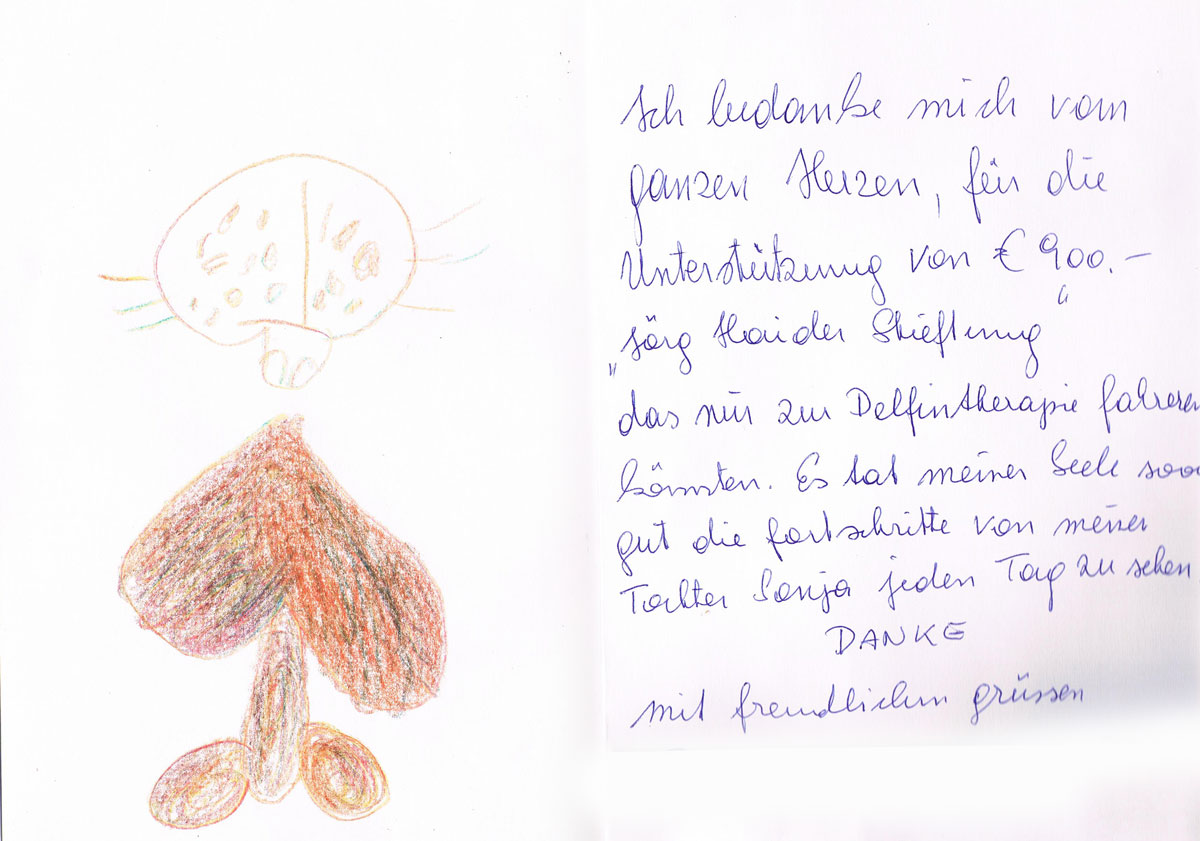 Ich bedanke mich vom
ganzen Herzen, für die
Unterstützung von € 900.–
„Jörg Haider Stieftung"
das nur zur Delfintherapie fahreren
könnten. Es tat meiner Seele sooo
gut die fortschritte von meiner
Tochter Sonja jeden Tag zu sehen
DANKE
mit freundlichen grüssen